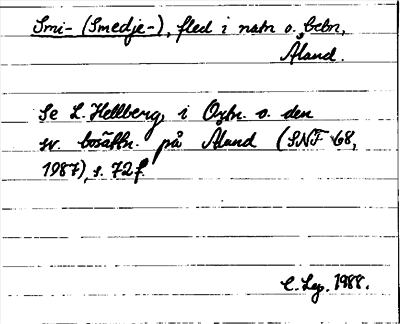 Smi- (Smedje-), fled i natn o. bebn,
Åland.
Se L. Hellberg, i Ortn. o. den
sv. bosättn. på Åland (SNF 68,
1987), s. 72 f.
C. Lep. 1988.